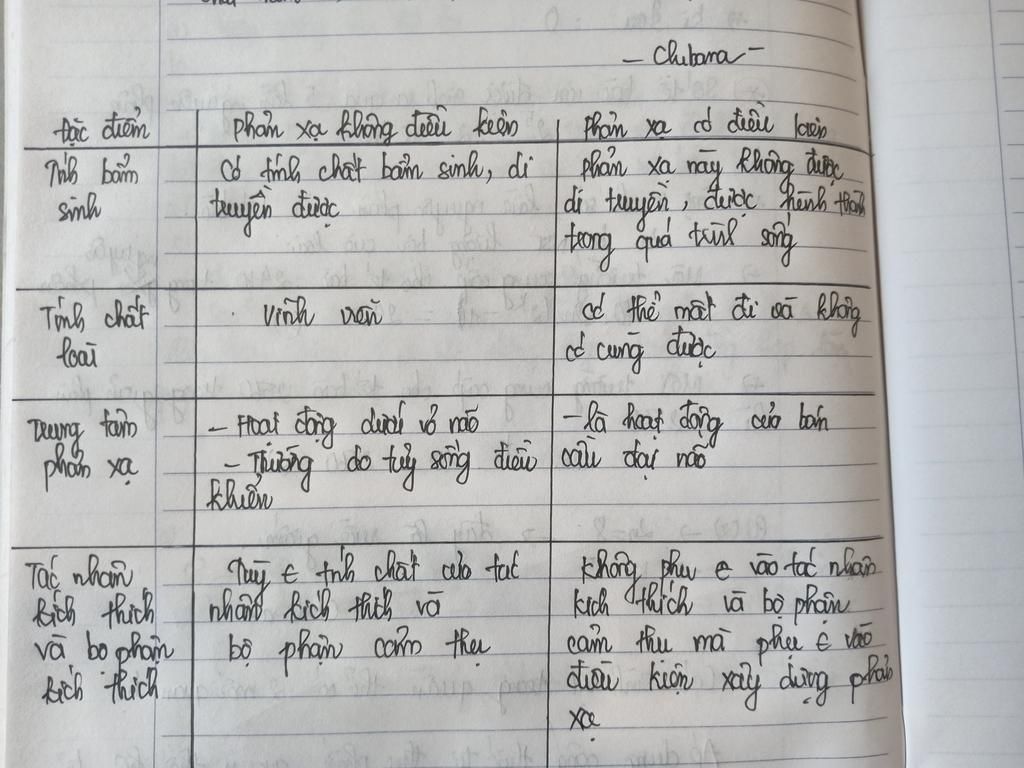 - Chibana -
Đặc điểm | phản xạ không điều kiện | phản xạ có điều kiện
Tính bẩm sinh | Có tính chất bẩm sinh, di truyền được | phản xạ này không được di truyền, được hình thành trong quá trình sống
Tính chất loài | Vĩnh viễn | có thể mất đi và không có cũng được
Trung tâm phản xạ | - Hoạt động dưới vỏ não - Thường do tuỷ sống điều khiển | - là hoạt động của bán cầu đại não
Tác nhân kích thích và bộ phận kích thích | Tuỳ ∈ tính chất của tác nhân kích thích và bộ phận cảm thụ | không phụ ∈ vào tác nhân kích thích và bộ phận cảm thụ mà phụ ∈ vào điều kiện xây dựng phản xạ